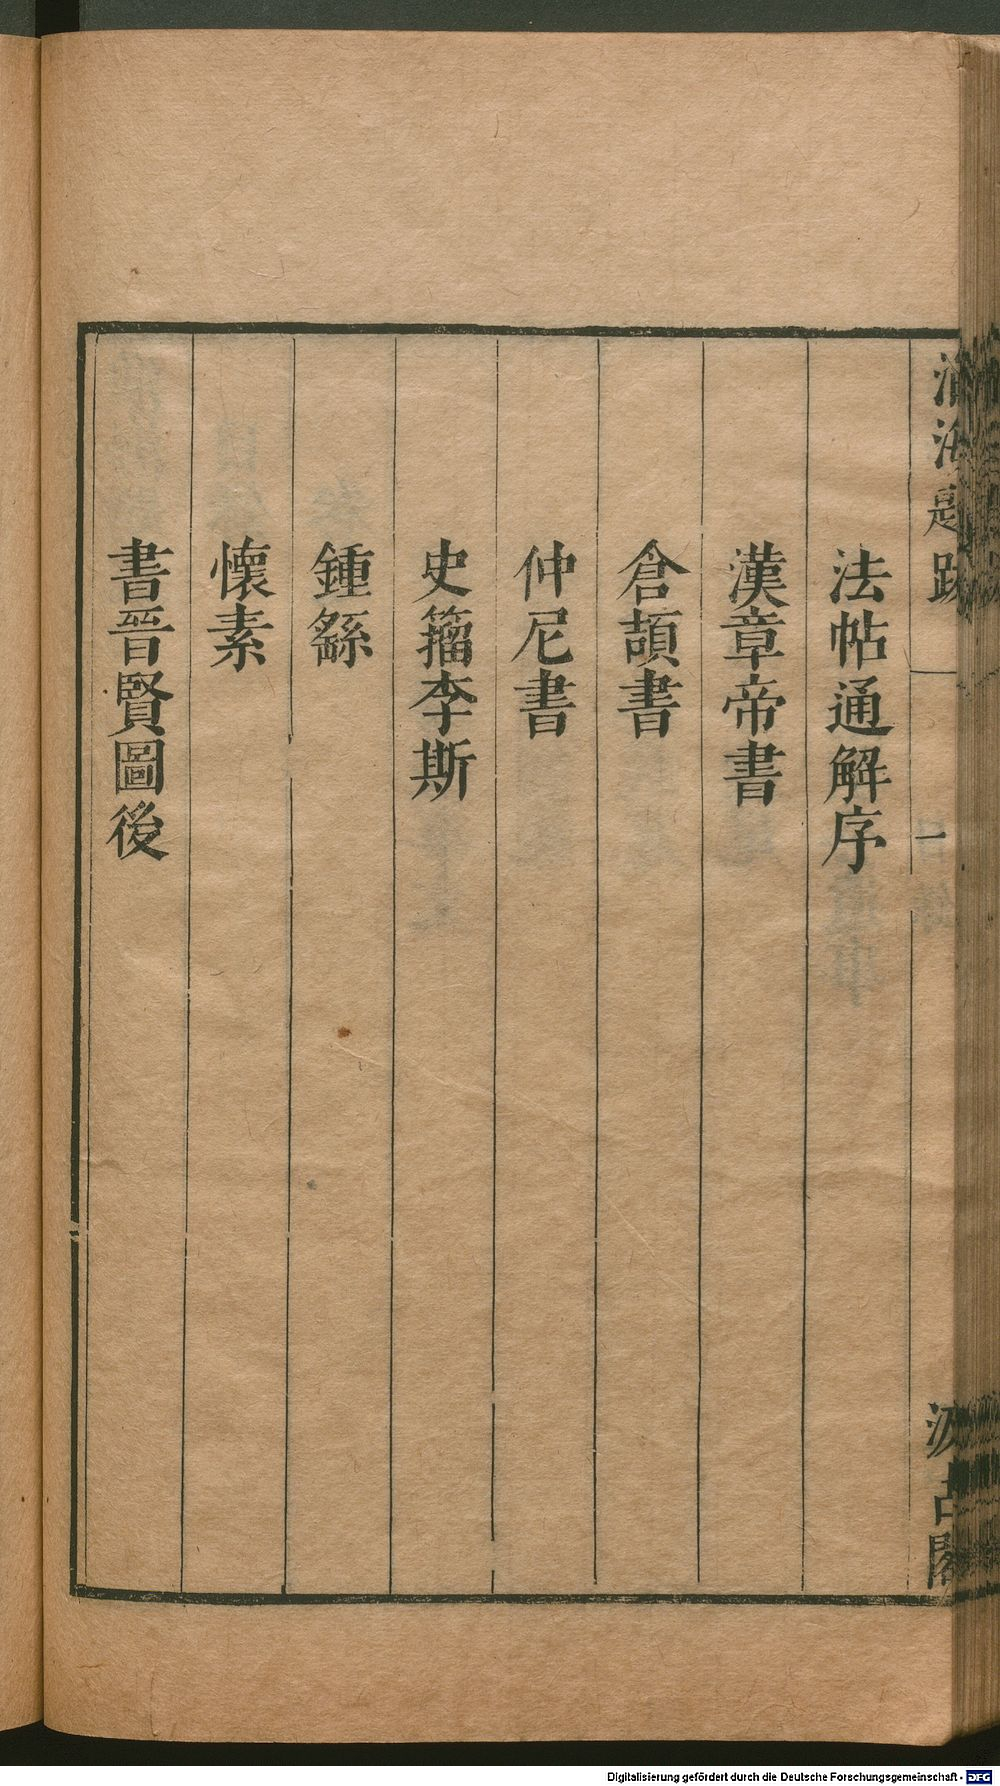 淮海題跋 一 汲古閣
法帖通解序
漢章帝書
倉頡書
仲尼書
史籀李斯
鍾繇
懷素
書晉賢圖後
Digitalisierung gefördert durch die Deutsche Forschungsgemeinschaft - DFG